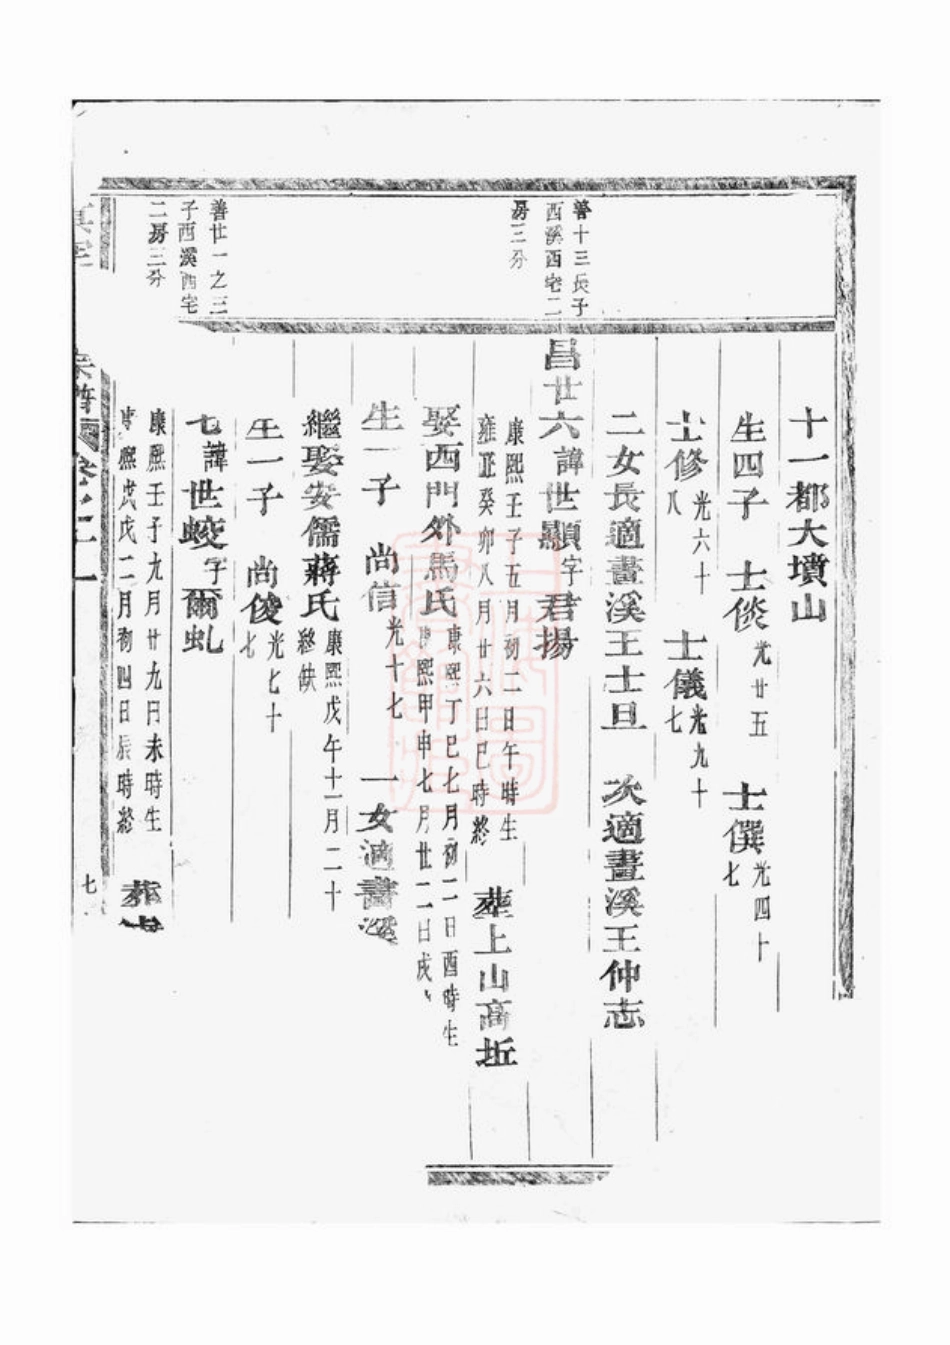 善十三長子
西溪西宅二
房三分
善廿一之三
子西溪西宅
二房三分
十一都大墳山
生四子 士倓光廿五 士僎光四十七
士修光六十八 士儀光九十七
二女長適畫溪王士旦 次適畫溪王仲志
昌廿六諱世顯字君揚
康熙壬子五月初二日午時生
雍正癸卯八月廿六日巳時終 葬上山高坵
娶西門外馬氏康熙丁巳七月初二日酉時生
康熙甲申七月廿二日戌
生一子 尚信光十七 一女適畫溪
繼娶安儒蔣氏康熙戊午十一月二十
終缺
生一子 尚俊光七十七
七諱世蛟字爾虬
康熙壬子九月廿九日未時生
康熙戊戌二月初四日辰時終 葬
七